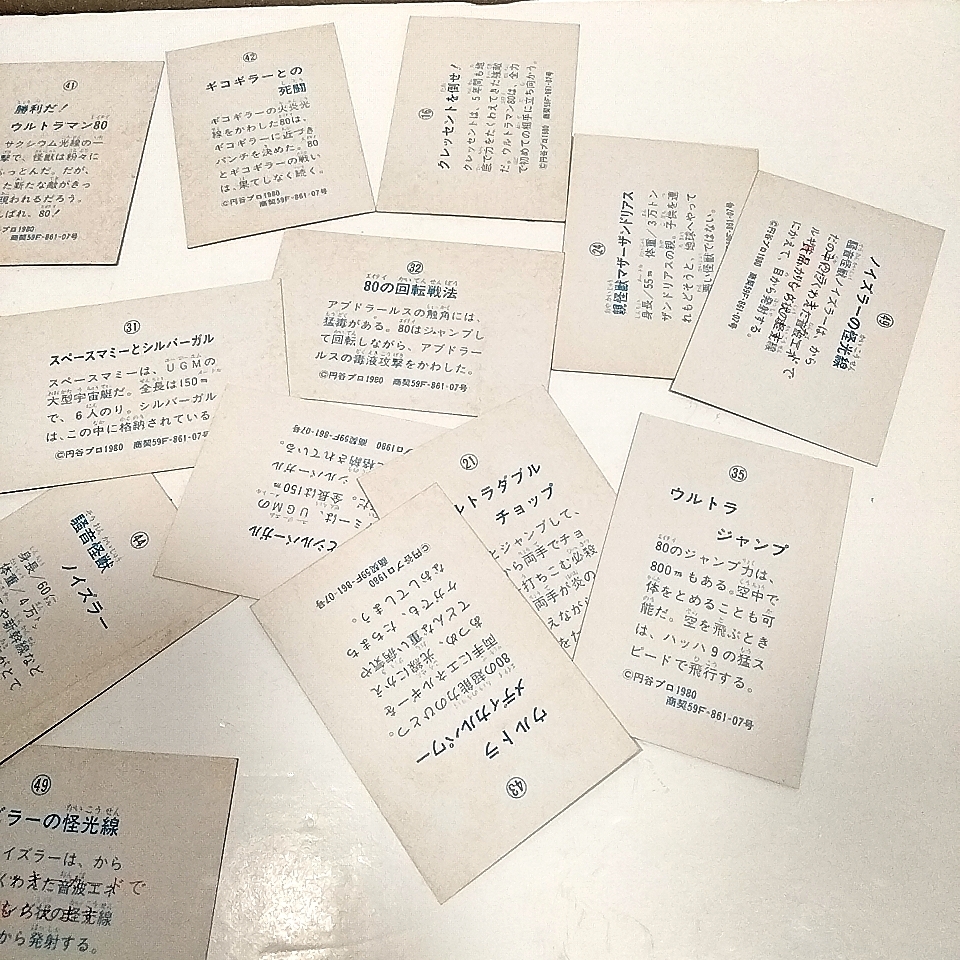 41
勝利だ！
ウルトラマン80
サクシウム光線の一
撃で、怪獣は粉々に
ふっとんだ。だが、
た新たな敵がきっ
現われるだろう。
ばれ、80！
プロ1980
商契59F-861-07号
42
ギコギラーとの
死闘
ギコギラーの火炎光
線をかわした80は、
ギコギラーに近づき
パンチを決めた。80
とギコギラーの戦い
は、果てしなく続く。
©円谷プロ1980
商契59F-861-07号
16
クレッセントを倒せ！
クレッセントは、5年間も地
底で力をたくわえてきた強敵
だ。ウルトラマン80は、全力
で初めての相手に立ち向かう。
©円谷プロ1980 商契59F-861-07号
24
親怪獣マザーザンドリアス
身長／55m 体重／3万トン
ザンドリアスの親。子供を連
れもどそうと、地球へやって
悪い怪獣ではない。
商契59F-861-07号
49
ノイズラーの怪光線
騒音怪獣ノイズラーは、から
だの中にたくわえた音波エネ
にかえて、目から発射する。
©円谷プロ1980
商契59F-861-07号
32
80の回転戦法
アブドラールスの触角には、
猛毒がある。80はジャンプし
て回転しながら、アブドラー
ルスの毒液攻撃をかわした。
©円谷プロ1980 商契59F-861-07号
31
スペースマミーとシルバーガル
スペースマミーは、UGMの
大型宇宙艇だ。全長は150m
で、6人のり。シルバーガル
は、この中に格納されている。
©円谷プロ1980 商契59F-861-07号
とシルバーガル
ミーは、UGMの
だ。全長は150m
シルバーガル
に格納されている。
プロ1980 商契59F-861-07号
21
ルトラダブル
チョップ
とジャンプして、
から両手でチョ
打ちこむ必殺
両手が炎の
えなが
をた
35
ウルトラ
ジャンプ
80のジャンプ力は、
800mもある。空中で
体をとめることも可
能だ。空を飛ぶとき
は、ハッハ9の猛ス
ピードで飛行する。
©円谷プロ1980
商契59F-861-07号
44
騒音怪獣
ノイズラー
身長／60m
体重／4万ト
や新幹線など
がとて
43
ウルトラ
メディカルパワー
80の超能力のひとつ。
両手にエネルギーを
あつめ、光線にかえ
てどんな重い病気や
ケガでも、たちまち
なおしてしまう。
©円谷プロ1980
商契59F-861-07号
49
ラーの怪光線
イズラーは、から
くわえた音波エネ
から発射する。